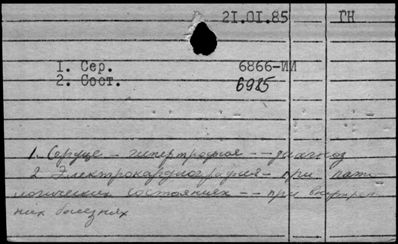 21.01.85 ГН
1. Сер. 6866-ИИ
2. Сост. 6985
1. Сердце - гипертрофия -- диагноз
2. Электрокардиография - при пато-
логических состояниях -- при внутрен-
них болезнях